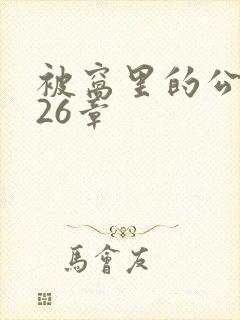 被窝里的公
26章
馬會友